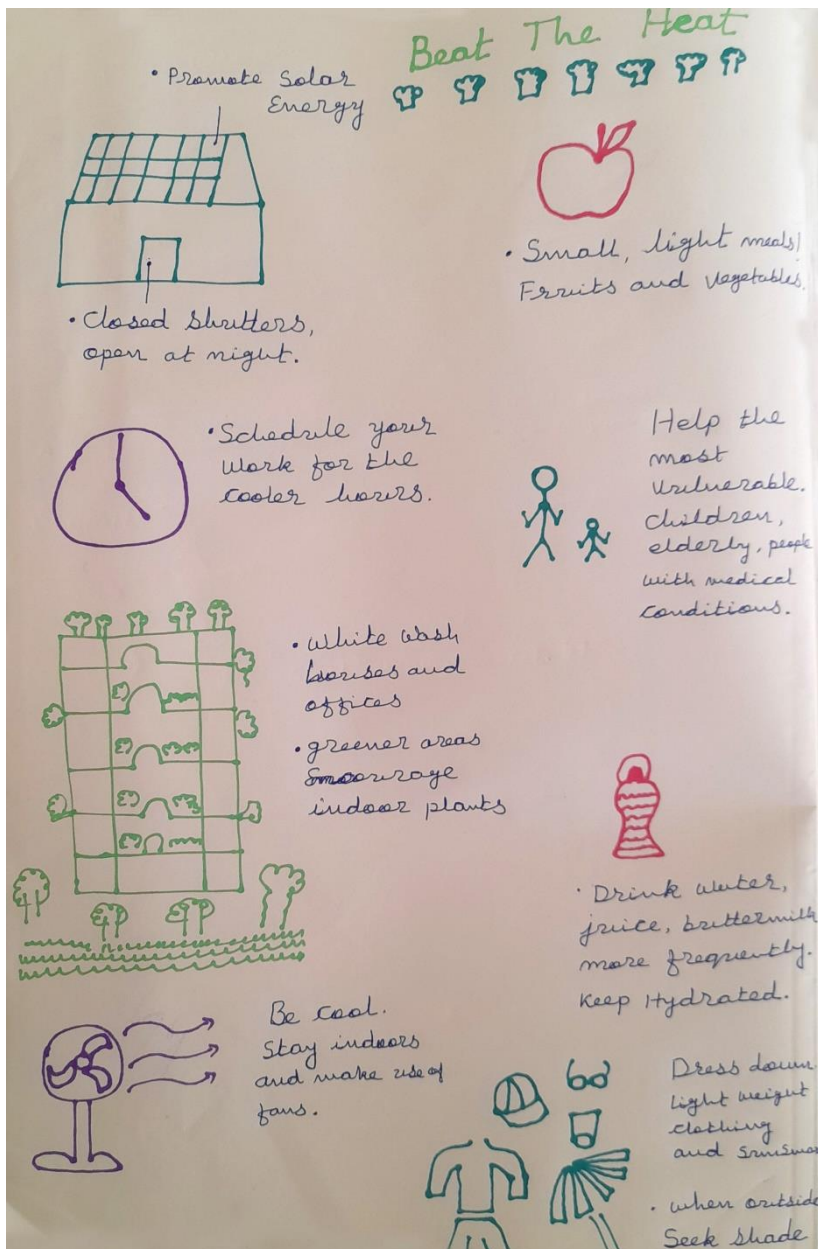 Beat The Heat
• Promote Solar
Energy
• Small, light meals!
Fruits and vegetables.
• Closed shutters,
open at night.
• Schedule your
work for the
cooler hours.
Help the
most
vulnerable.
children,
elderly, people
with medical
conditions.
• White wash
houses and
offices
• greener areas
indoor plants
• Drink water,
juice, buttermilk
more frequently.
Keep Hydrated.
Be cool.
Stay indoors
and make use of
fans.
Dress down.
light weight
clothing
and
• when outside
Seek shade